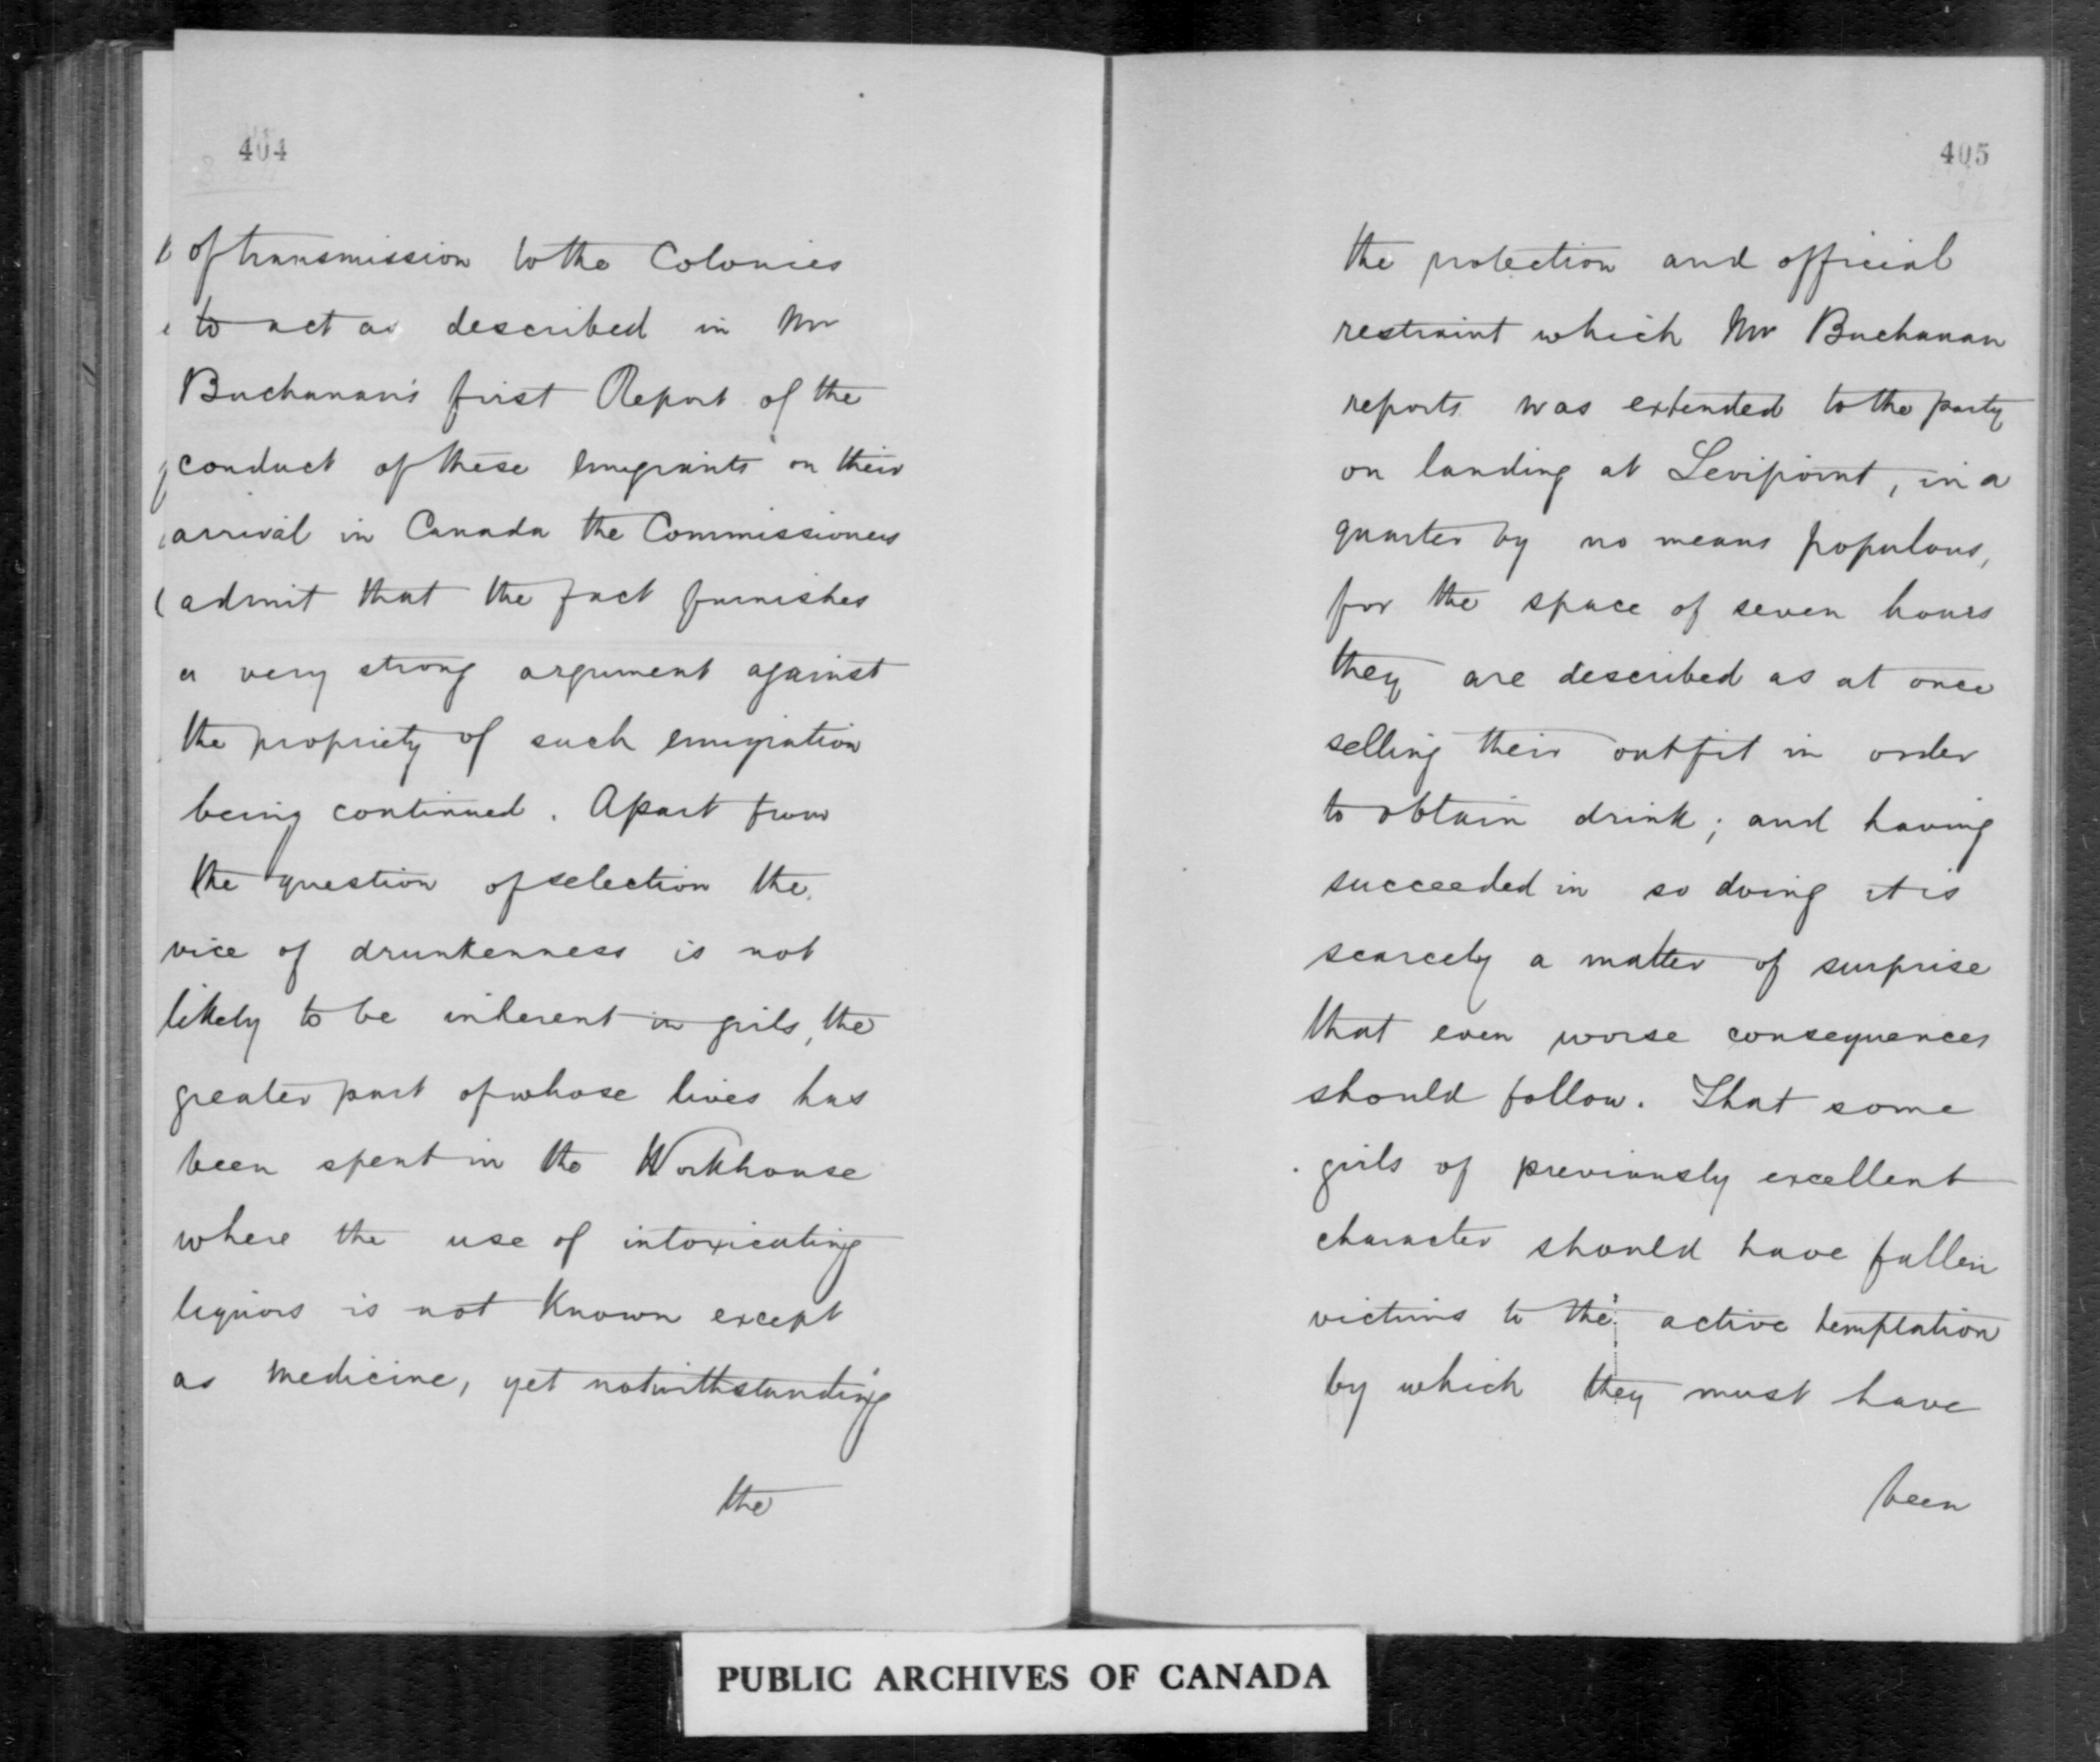 404
of transmission to the Colonies
to act as described in Mr
Buchanan's first Report of the
conduct of these emigrants on their
arrival in Canada the Commissioners
admit that the fact furnishes
a very strong argument against
the propriety of such emigration
being continued. Apart from
the question of selection the
vice of drunkenness is not
likely to be inherent in girls, the
greater part of whose lives has
been spent in the Workhouse
where the use of intoxicating
liquors is not known except
as medicine, yet notwithstanding
the
405
the protection and official
restraint which Mr Buchanan
reports was extended to the party
on landing at Levipoint, in a
quarter by no means populous,
for the space of seven hours
they are described as at once
selling their outfit in order
to obtain drink; and having
succeeded in so doing it is
scarcely a matter of surprise
that even worse consequences
should follow. That some
girls of previously excellent
character should have fallen
victims to the active temptation
by which they must have
been
PUBLIC ARCHIVES OF CANADA